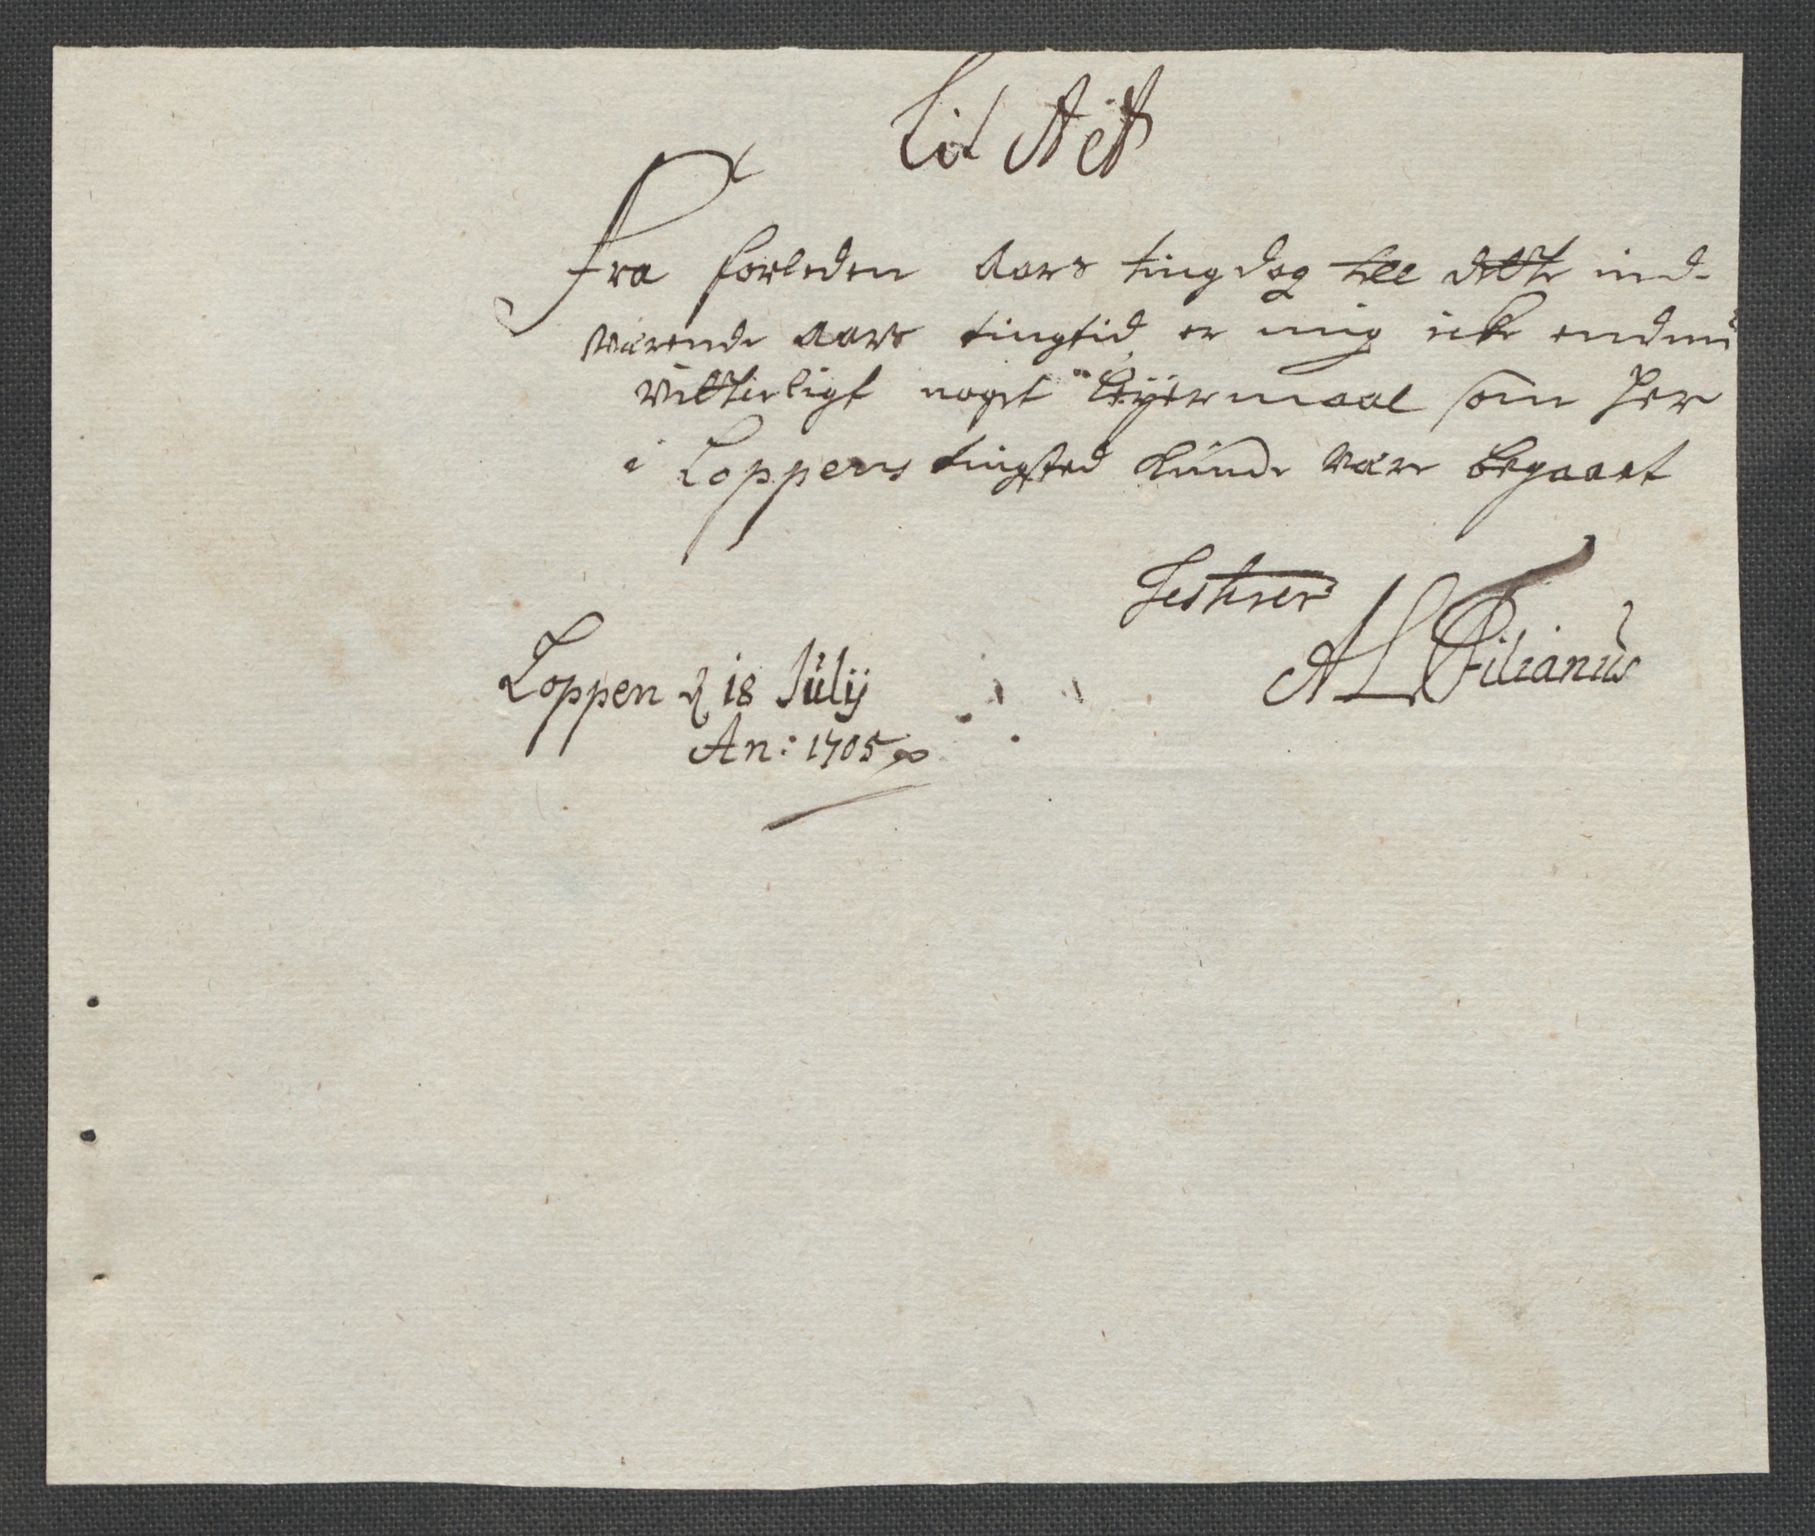 Lit A et A
Fra forleden Aars tingdag till dette ind-
værende Aars tingtid er mig icke endnu
vitterligt noget Leyermaal som her
i Loppens tingsted kunde være begaaet
Testerer
A L Filianus
Loppen d 18 Julij
An: 1705